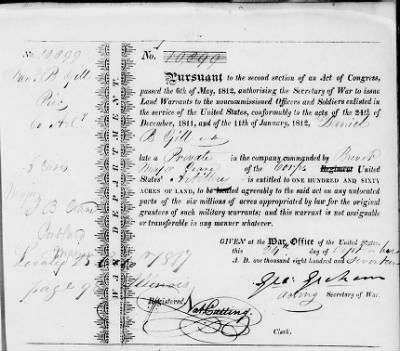 No. 10099
No. 10099
PURSUANT to the second section of an Act of Congress,
passed the 6th of May, 1812, authorising the Secretary of War to issue
Land Warrants to the noncommissioned Officers and Soldiers enlisted in
the service of the United States, conformably to the acts of the 24th of
December, 1811, and the 11th of January, 1812, Daniel
B Gill
late a Private in the company commanded by Brevet
Major of the Corps Regiment United
States' Artillery is entitled to ONE HUNDRED AND SIXTY
ACRES OF LAND, to be located agreeably to the said act on any unlocated
parts of the six millions of acres appropriated by law for the original
grantees of such military warrants; and this warrant is not assignable
or transferable in any manner whatever.
GIVEN at the War Office of the United States,
this 24th day of September
A. D. one thousand eight hundred and Seventeen
Geo: Graham
acting Secretary of War.
Registered Nat Cutting
Clerk.
WAR DEPARTMENT.
B Gill